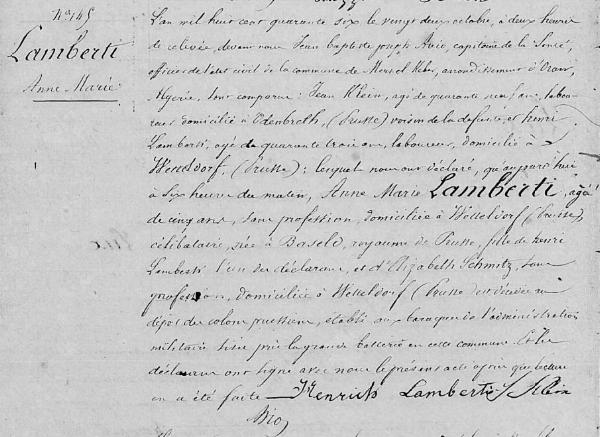 No 145
Lamberti
Anne Marie
L'an mil huit cent quarante six le vingt deux octobre, à deux heures
de relevée, devant nous Jean baptiste joseph Avio, capitaine de la Santé,
officier de l'état civil de la commune de Mers el Kebir, arrondissement d'Oran,
Algérie, sont comparus: Jean Klein, agé de quarante ans, labou-
reur, domicilié à Odenbreth, (Prusse) voisin de la defunte et henri
Lamberti, agé de quarante trois ans, laboureur, domicilié à
Wetteldorf, (Prusse); lesquels nous ont déclaré, qu'aujourd'hui
à six heures du matin, Anne Marie Lamberti, agée
de cinq ans, sans profession, domiciliée à Wetteldorf (Prusse),
célibataire, née à Baseld, royaume de Prusse, fille de henri
Lamberti l'un des déclarans, et d'Elizabeth Schmitz, sans
profession, domiciliée à Wetteldorf (Prusse) est décédée au
dépôt des colons prussiens, établi aux baraques de l'administration
militaire sise près la grande batterie en cette commune. Et les
déclarans ont signé avec nous le présent acte après que lecture
en a été faite Henrich Lamberti J Klein
Avio